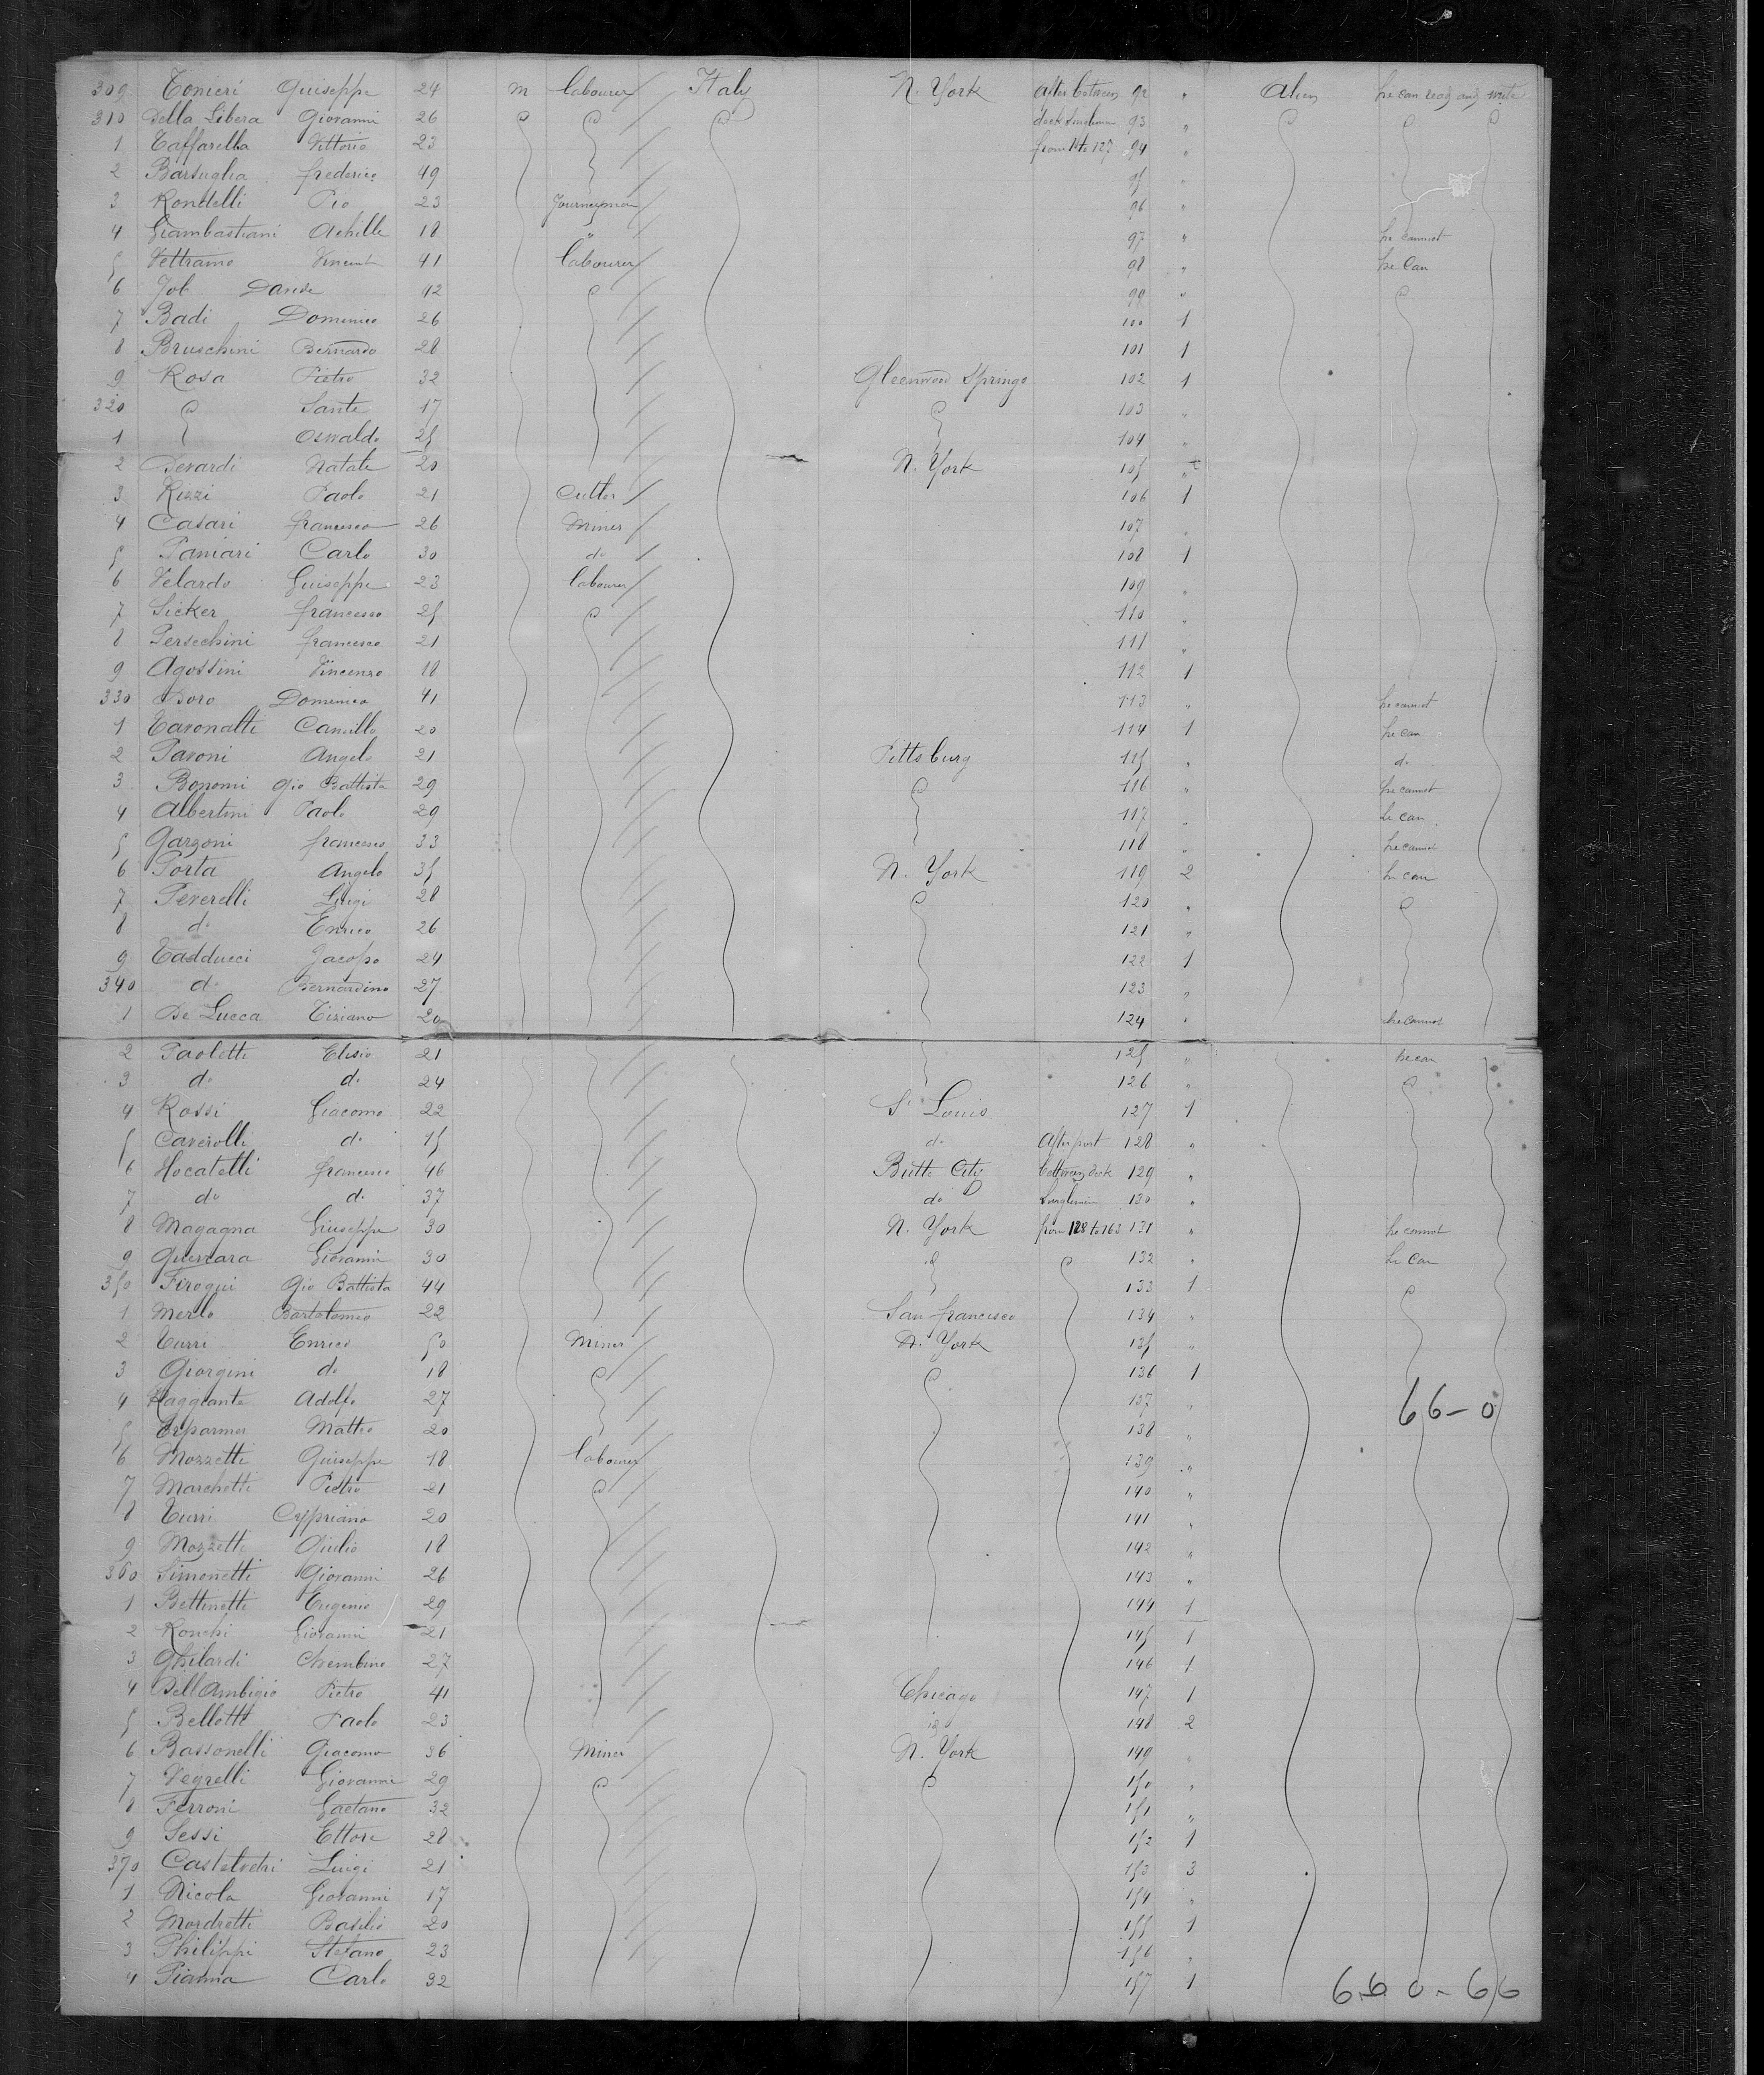 309 Tonieri Guiseppe 24 m labourer Italy N. York After between 92 " Alien he can read and write
310 Della Libera Giovanni 26 deck Singlemen 93 "
1 Taffarella Vittorio 23 from 1 to 127 94 "
2 Barsuglia frederico 49 95 "
3 Rondelli Pio 23 Journeyman 96 "
4 Giambastiani Achille 18 " 97 " he cannot
5 Vettramo Vincent 41 labourer 98 " he Can
6 Job Davide 42 99 "
7 Badi Domenico 26 100 1
8 Bruschini Bernardo 28 101 1
9 Rosa Pietro 32 Gleenwood Springs 102 1
320 Sante 17 103 "
1 Oswaldo 25 104 "
2 Berardi Natale 20 N. York 105
3 Rizzi Paolo 21 Cutter 106 1
4 Casari francesco 26 Miner 107 "
5 Paniari Carlo 30 do 108 1
6 Velardo Guiseppe 23 labourer 109 "
7 Sicker francesco 25 110 "
8 Persechini francesco 21 111 "
9 Agostini Vincenzo 18 112 1
330 Boro Domenico 41 113 " he cannot
1 Tavonatti Camillo 20 114 1 he can
2 Pavoni Angelo 21 Pittsburg 115 " do
3 Bonomi Gio Battista 29 116 " he cannot
4 Albertini Paolo 29 117 " he can
5 Garzoni francesco 33 118 " he cannot
6 Porta Angelo 35 N. York 119 2 he can
7 Peverelli Luigi 28 120 "
8 do Enrico 26 121 "
9 Tadducci Jacopo 24 122 1
340 do Bernardino 27 123 "
1 De Lucca Tiziano 20 124 " he cannot
2 Paoletti Elisio 21 125 " he can
3 do do 24 126 "
4 Rossi Giacomo 22 St Louis 127 1
5 Caverolli do 15 do After part 128 "
6 Hocatelli francesco 46 Butte City between deck 129 "
7 do do 37 do Singlemen 130 "
8 Magagna Giuseppe 30 N. York from 128 to 163 131 " he cannot
9 Giovanni 30 132 " he can
350 Firogui Gio Battista 44 133 1
1 Merlo Bartolomeo 22 San francisco 134 "
2 Turri Enrico 50 Miner N. York 135 "
3 Giorgini do 18 136 1
4 Raggiante Adolfo 27 137 " 66-0
5 Matteo 20 138 "
6 Mozzetti Guiseppe 18 labourer 139 "
7 Marchetti Pietro 21 140 "
8 Turri Cypriano 20 141 "
9 Mozzetti Giulio 18 142 "
360 Simonetti Giovanni 26 143 "
1 Bettinetti Eugenio 29 144 1
2 Ronchi Giovanni 21 145 1
3 Ghilardi Cherubino 27 146 1
4 Dell Ambigio Pietro 41 Chicago 147 1
5 Bellotti Paolo 23 id 148 2
6 Bassonelli Giacomo 36 Miner N. York 149 "
7 Vegrelli Giovanni 29 150 "
8 Ferroni Gaetano 32 151 "
9 Sessi Ettore 28 152 1
370 Castelvetri Luigi 21 153 3
1 Nicola Giovanni 17 154 "
2 Mordretti Basilio 20 155 1
3 Philippi Stefano 23 156 "
4 Pianna Carlo 32 157 1 660-66